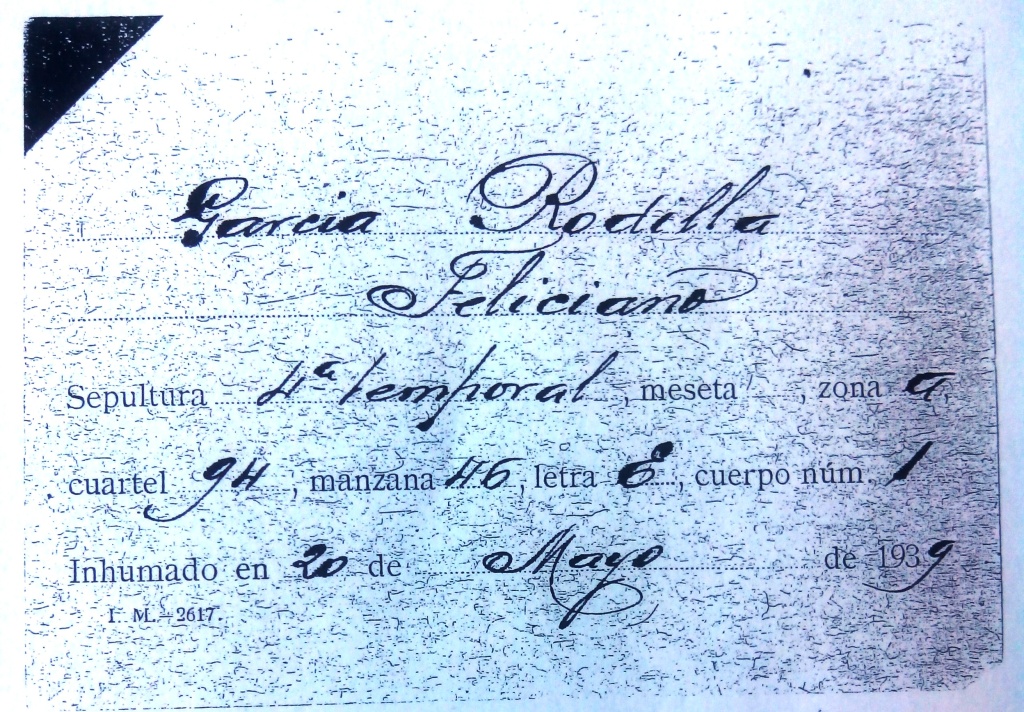 Garcia Rodilla
Feliciano
Sepultura 4ª temporal, meseta , zona a,
cuartel 94, manzana 46, letra E, cuerpo núm. 1
Inhumado en 20 de Mayo de 1939
I. M.-2617.